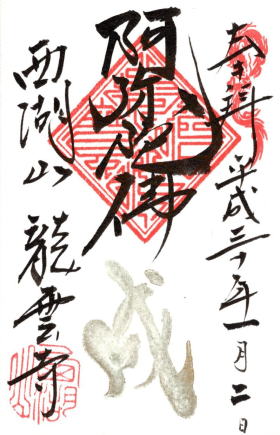 奉拝
平成三十年一月二日
阿弥陀佛
戌
西湖山
龍雲寺